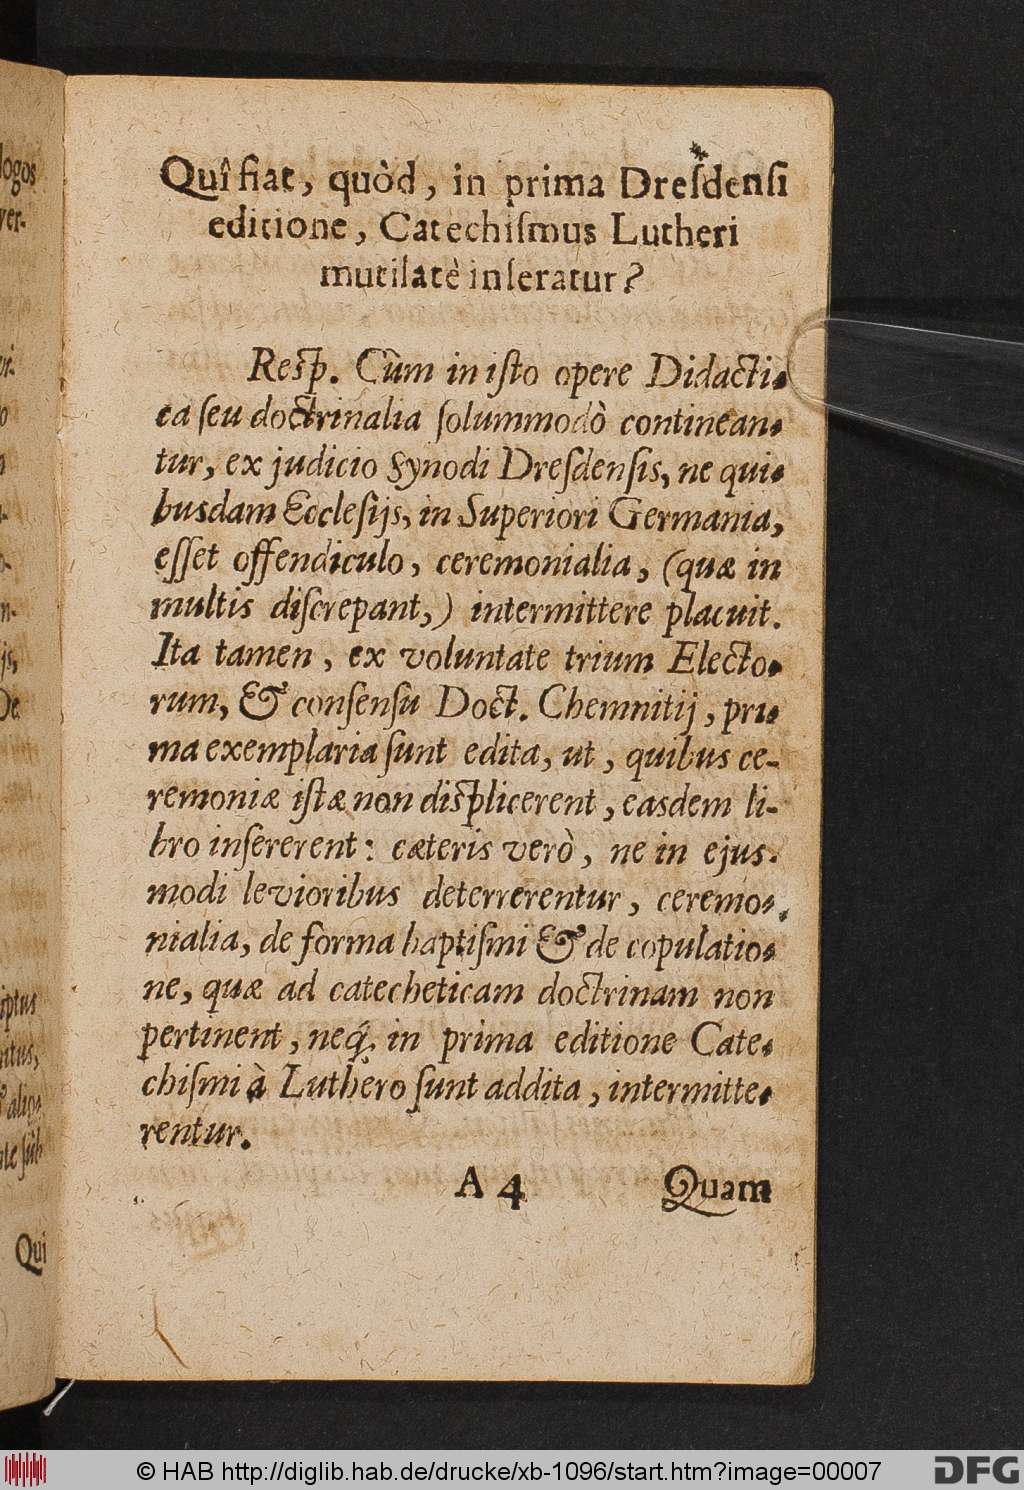 Quî fiat, quòd, in prima Dreſdenſi
editione, Catechiſmus Lutheri
mutilatè inſeratur?
Reſp. Cùm in iſto opere Didacti-
ca ſeu doctrinalia ſolummodò continean-
tur, ex judicio Synodi Dreſdenſis, ne qui-
busdam Eccleſijs, in Superiori Germania,
eſſet offendiculo, ceremonialia, (quæ in
multis diſcrepant,) intermittere placuit.
Ita tamen, ex voluntate trium Electo-
rum, & conſenſu Doct. Chemnitij, pri-
ma exemplaria ſunt edita, ut, quibus ce-
remoniæ iſtæ non diſplicerent, easdem li-
bro inſererent: cæteris verò, ne in ejus-
modi levioribus deterrerentur, ceremo-
nialia, de forma baptiſmi & de copulatio-
ne, quæ ad catecheticam doctrinam non
pertinent, neq́; in prima editione Cate-
chiſmi à Luthero ſunt addita, intermitte-
rentur.
A 4 Quam
logos
ver-
iptus
Qui
© HAB http://diglib.hab.de/drucke/xb-1096/start.htm?image=00007
DFG